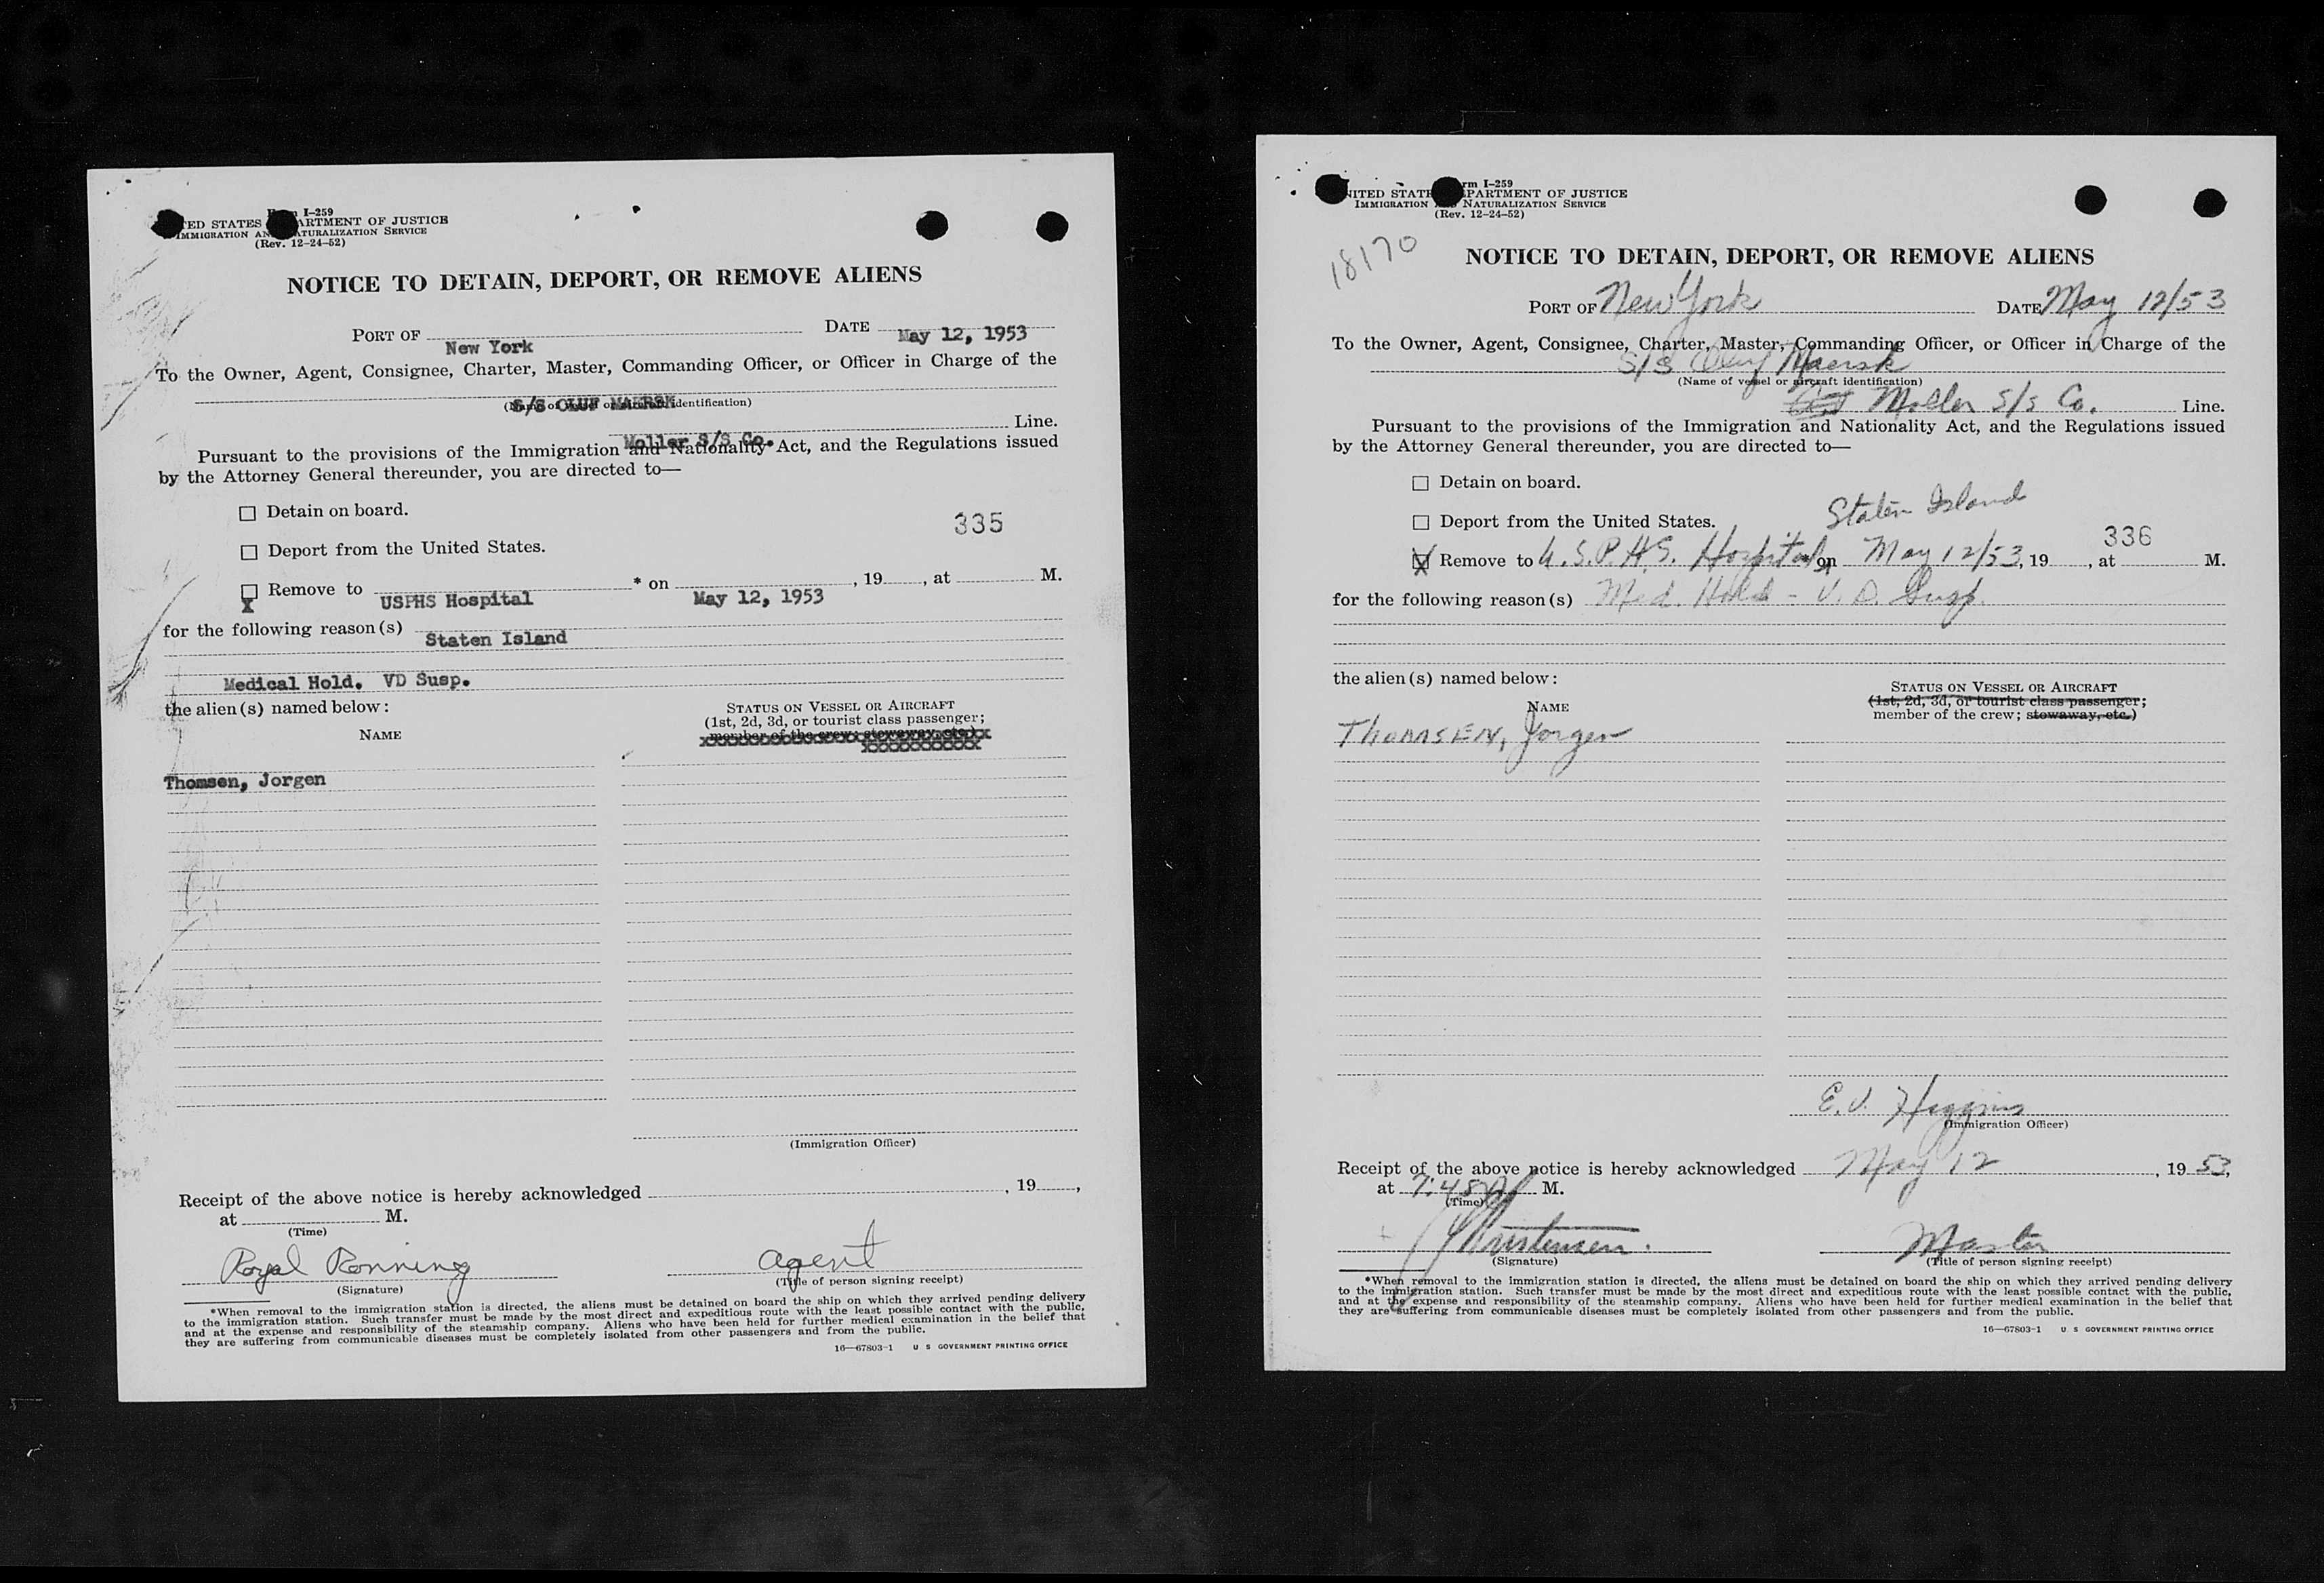 Form I-259
UNITED STATES DEPARTMENT OF JUSTICE
IMMIGRATION AND NATURALIZATION SERVICE
(Rev. 12-24-52)
NOTICE TO DETAIN, DEPORT, OR REMOVE ALIENS
PORT OF New York DATE May 12, 1953
To the Owner, Agent, Consignee, Charter, Master, Commanding Officer, or Officer in Charge of the
S/S OLUF MAERSK
(Name of vessel or aircraft identification)
Moller S/S Co. Line.
Pursuant to the provisions of the Immigration and Nationality Act, and the Regulations issued
by the Attorney General thereunder, you are directed to—
☐ Detain on board.
335
☐ Deport from the United States.
☐ Remove to USPHS Hospital * on May 12, 1953, 19, at M.
X
for the following reason(s) Staten Island
Medical Hold. VD Susp.
the alien(s) named below:
NAME
STATUS ON VESSEL OR AIRCRAFT
(1st, 2d, 3d, or tourist class passenger;
member of the crew; stowaway, etc.)
Thomsen, Jorgen
(Immigration Officer)
Receipt of the above notice is hereby acknowledged , 19 ,
at M.
(Time)
Royal Ronning agent
(Signature) (Title of person signing receipt)
*When removal to the immigration station is directed, the aliens must be detained on board the ship on which they arrived pending delivery
to the immigration station. Such transfer must be made by the most direct and expeditious route with the least possible contact with the public,
and at the expense and responsibility of the steamship company. Aliens who have been held for further medical examination in the belief that
they are suffering from communicable diseases must be completely isolated from other passengers and from the public.
16—67803-1 U S GOVERNMENT PRINTING OFFICE
Form I-259
UNITED STATES DEPARTMENT OF JUSTICE
IMMIGRATION AND NATURALIZATION SERVICE
(Rev. 12-24-52)
18170
NOTICE TO DETAIN, DEPORT, OR REMOVE ALIENS
PORT OF New York DATE May 12/53
To the Owner, Agent, Consignee, Charter, Master, Commanding Officer, or Officer in Charge of the
S/S Oluf Maersk
(Name of vessel or aircraft identification)
Moller S/s Co. Line.
Pursuant to the provisions of the Immigration and Nationality Act, and the Regulations issued
by the Attorney General thereunder, you are directed to—
☐ Detain on board.
Staten Island
☐ Deport from the United States.
336
☒ Remove to U.S.P.H.S. Hospital * on May 12/53, 19, at M.
for the following reason(s) Med. Hold - V.D. Susp.
the alien(s) named below:
NAME
STATUS ON VESSEL OR AIRCRAFT
(1st, 2d, 3d, or tourist class passenger;
member of the crew; stowaway, etc.)
THOMSEN, Jorgen
E.J. Higgins
(Immigration Officer)
Receipt of the above notice is hereby acknowledged May 12, 19 53,
at 7:45 A M.
(Time)
Christensen. Master
(Signature) (Title of person signing receipt)
*When removal to the immigration station is directed, the aliens must be detained on board the ship on which they arrived pending delivery
to the immigration station. Such transfer must be made by the most direct and expeditious route with the least possible contact with the public,
and at the expense and responsibility of the steamship company. Aliens who have been held for further medical examination in the belief that
they are suffering from communicable diseases must be completely isolated from other passengers and from the public.
16—67803-1 U S GOVERNMENT PRINTING OFFICE